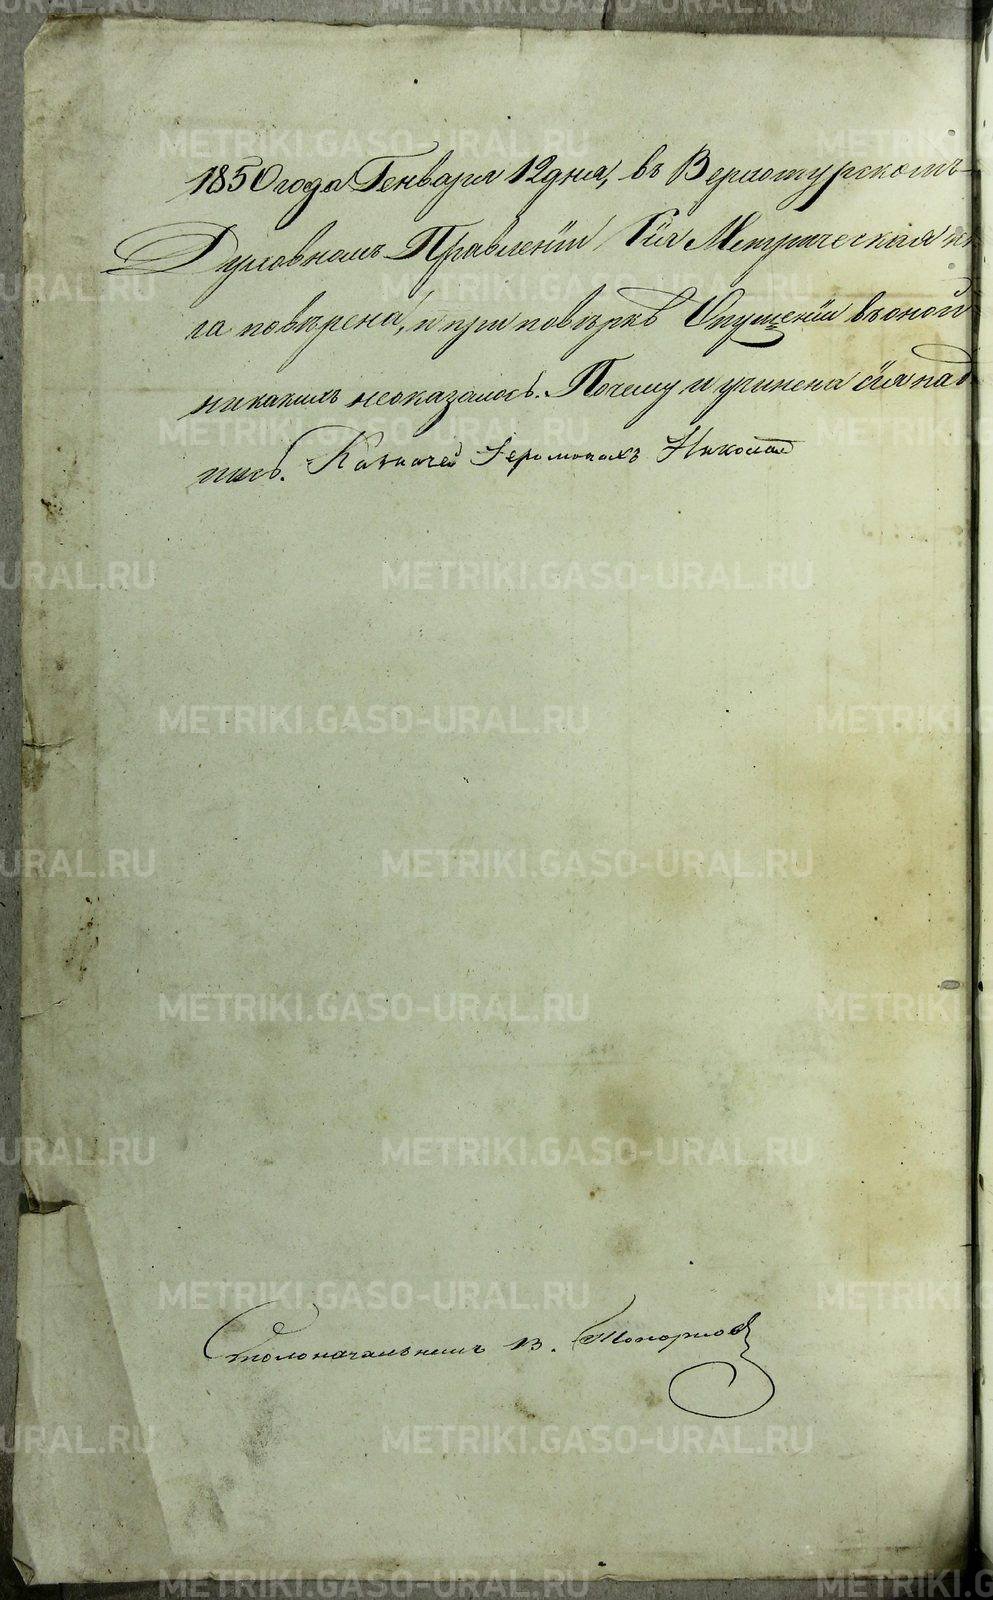 1850 года Генваря 12 дня, въ Верхотурскомъ
Духовномъ Правленіи Сія Метрическая кн
га повѣрена, и при повѣркѣ Опущеніи въ оной
никакихъ неоказалось. Почему и учинена сія над
пись. Казначей Іеромонахъ Николай
Столоначальникъ В.
METRIKI.GASO-URAL.RU